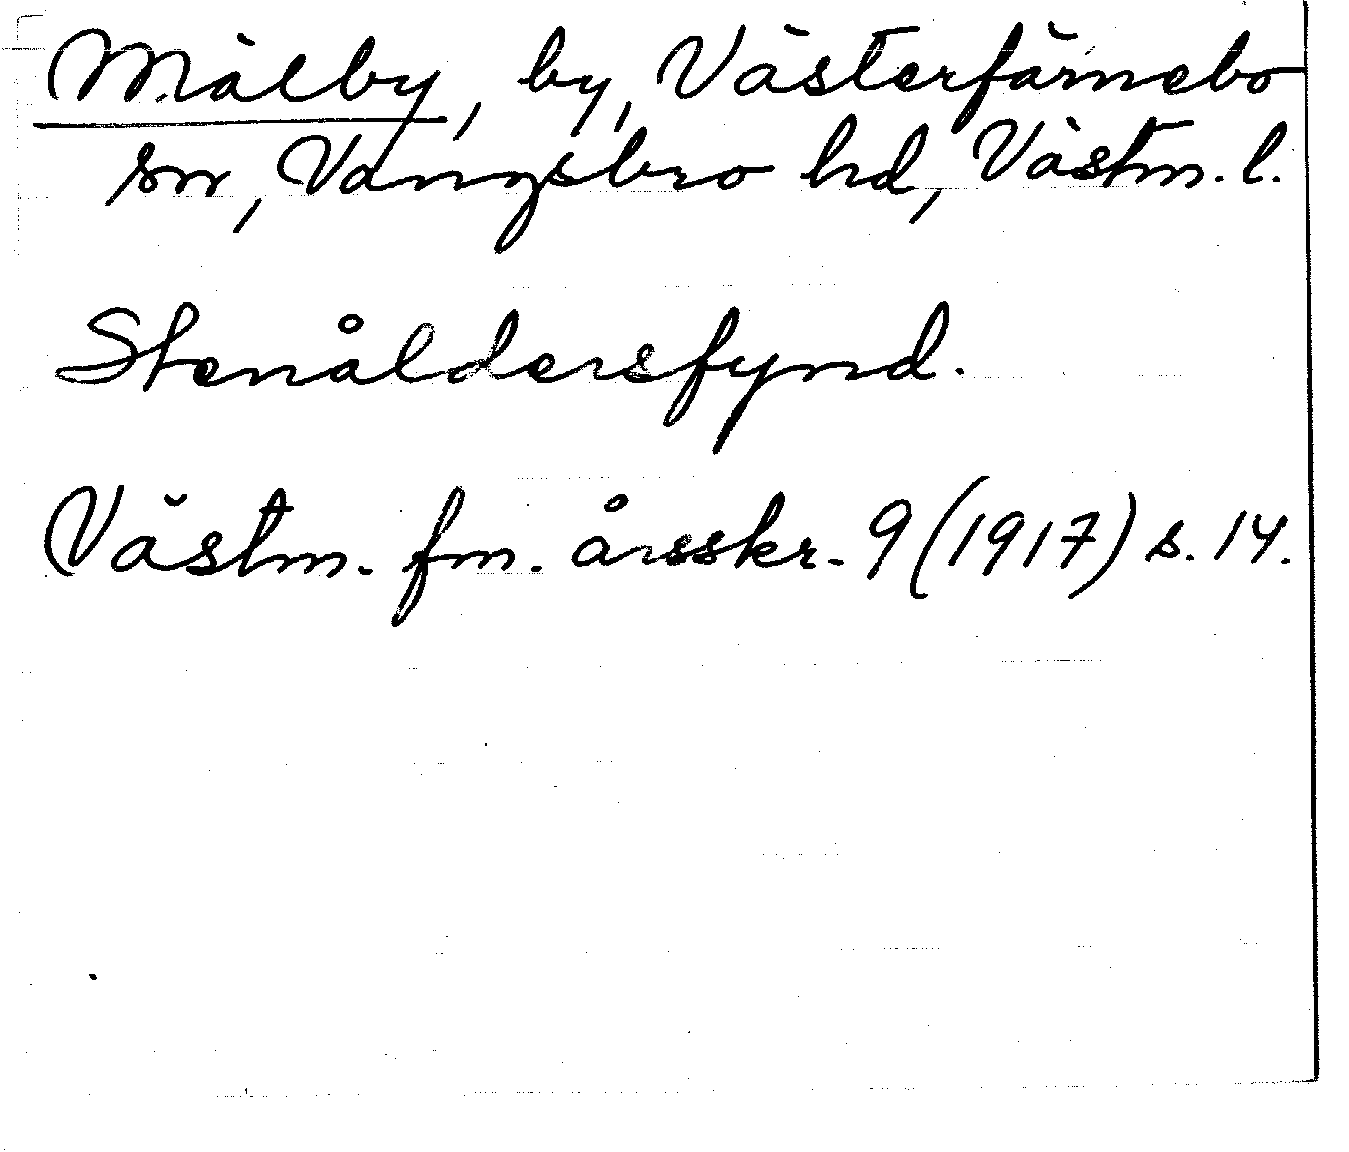 Mälby, by, Västerfärnebo
sn, Vangsbro hd, Västm. l.
Stenåldersfynd.
Västm. fm. årsskr. 9 (1917) s. 14.